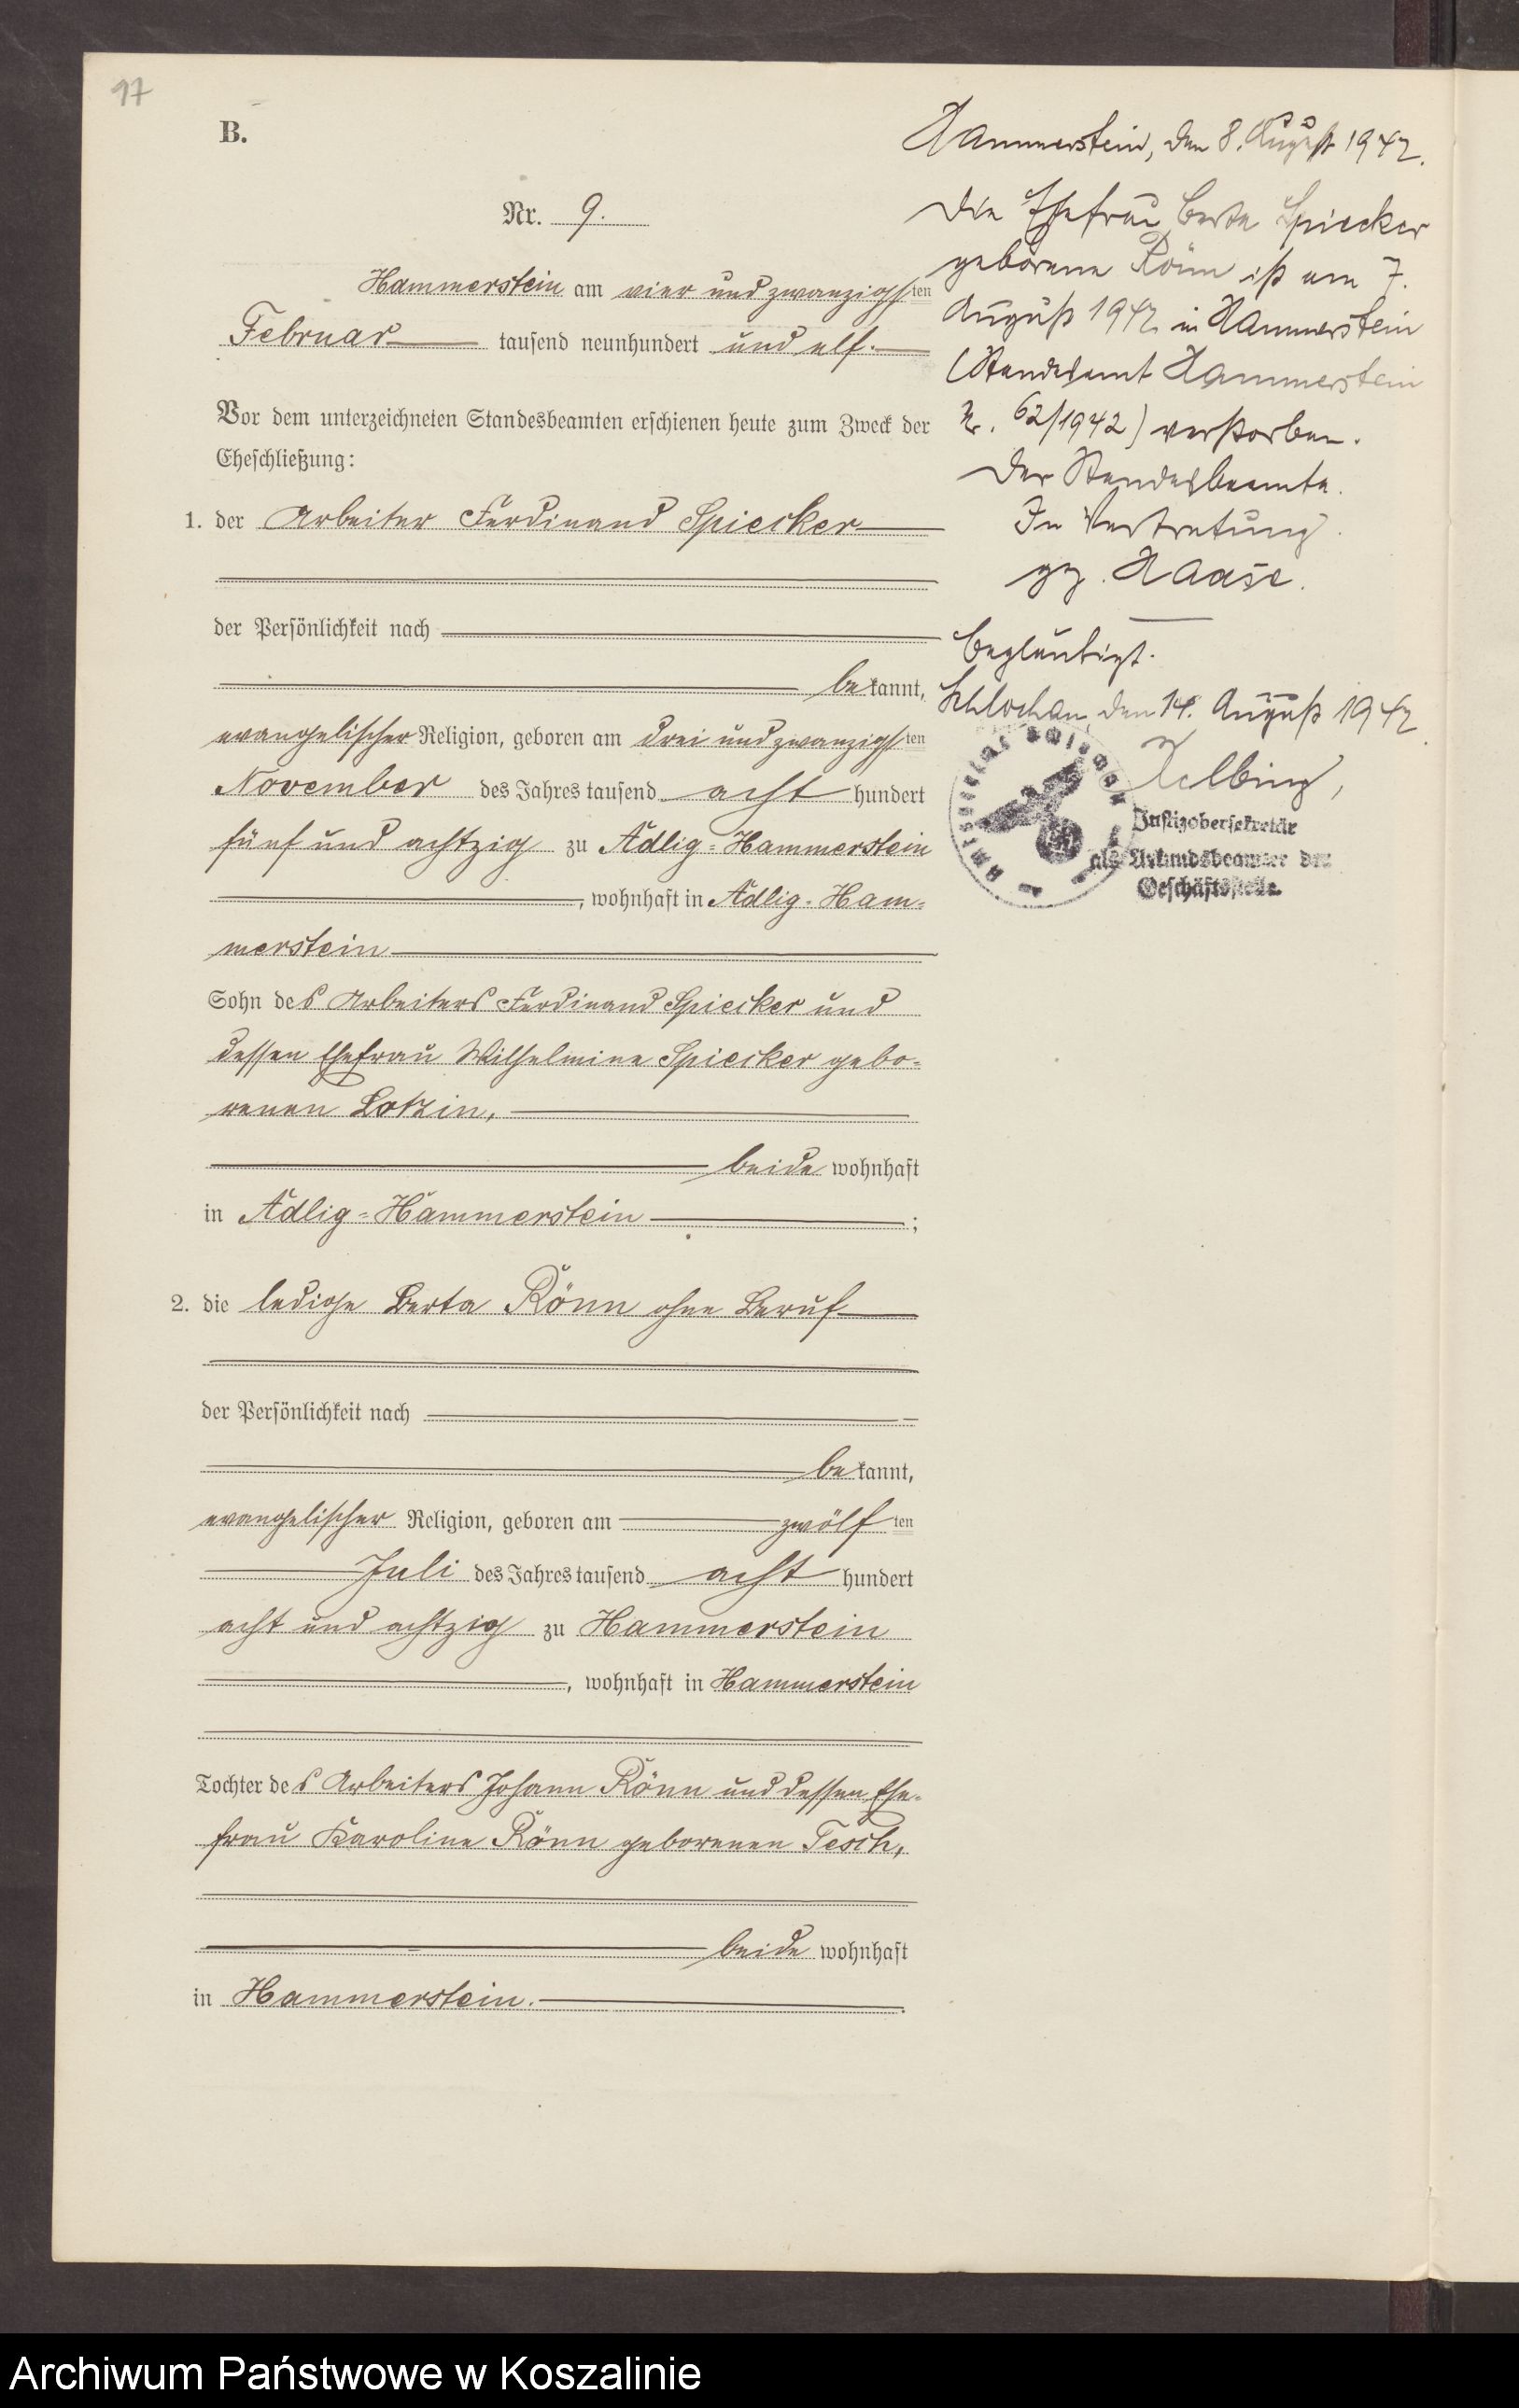 17
B.
Nr. 9.
Hammerstein am vier und zwanzigsten
Februar tausend neunhundert und elf.
Vor dem unterzeichneten Standesbeamten erschienen heute zum Zweck der
Eheschließung:
1. der Arbeiter Ferdinand Spiecker
der Persönlichkeit nach
bekannt,
evangelischer Religion, geboren am drei und zwanzigsten
November des Jahres tausend acht hundert
fünf und achtzig zu Adlig-Hammerstein
, wohnhaft in Adlig-Ham-
merstein
Sohn des Arbeiters Ferdinand Spiecker und
dessen Ehefrau Wilhelmine Spiecker gebo-
renen Lotzin,
beide wohnhaft
in Adlig-Hammerstein ;
2. die ledige Berta Könn ohne Beruf
der Persönlichkeit nach
bekannt,
evangelischer Religion, geboren am zwölften
Juli des Jahres tausend acht hundert
acht und achtzig zu Hammerstein
, wohnhaft in Hammerstein
Tochter des Arbeiters Johann Könn und dessen Ehe-
frau Karoline Könn geborenen Tesch,
beide wohnhaft
in Hammerstein.
Hammerstein, den 8. August 1942.
Die Ehefrau Berta Spiecker
geborene Könn ist am 7.
August 1942 in Hammerstein
(Standesamt Hammerstein
Nr. 62/1942) verstorben.
Der Standesbeamte.
In Vertretung
gez. Haase.
Beglaubigt.
Schlochau, den 14. August 1942
Justizobersekretär
als Urkundsbeamter der
Geschäftsstelle.
Archiwum Państwowe w Koszalinie